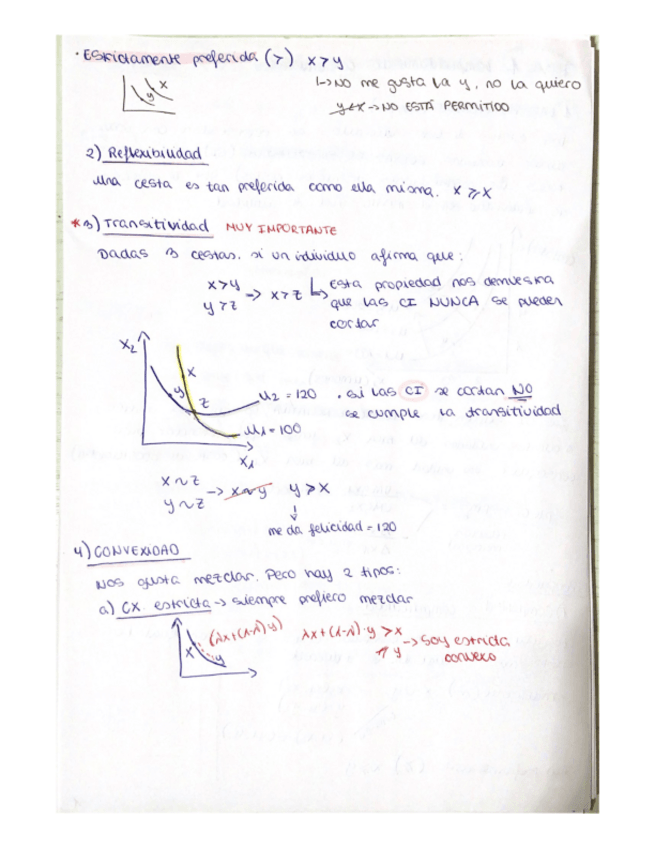 · Estrictamente preferida (>) x > y
x
y
↳ No me gusta la y, no la quiero
y < x → NO ESTÁ PERMITIDO
2) Reflexibilidad
Una cesta es tan preferida como ella misma. x ≥ x
* 3) Transitividad MUY IMPORTANTE
Dadas 3 cestas, si un individuo afirma que:
x > y
y > z
→ x > z
↳ Esta propiedad nos demuestra
que las CI NUNCA se pueden
cortar
x₂
x
y
z
u₂ = 120
u₁ = 100
x₁
· si las CI se cortan NO
se cumple la transitividad
x ~ z
y ~ z
→ x ~ y
y > x
↓
me da felicidad = 120
4) CONVEXIDAD
Nos gusta mezclar. Pero hay 2 tipos:
a) CX. estricta → siempre prefiero mezclar
x
y
(λx+(1-λ)·y)
λx+(1-λ)·y > x
y
→ soy estricta
convexo